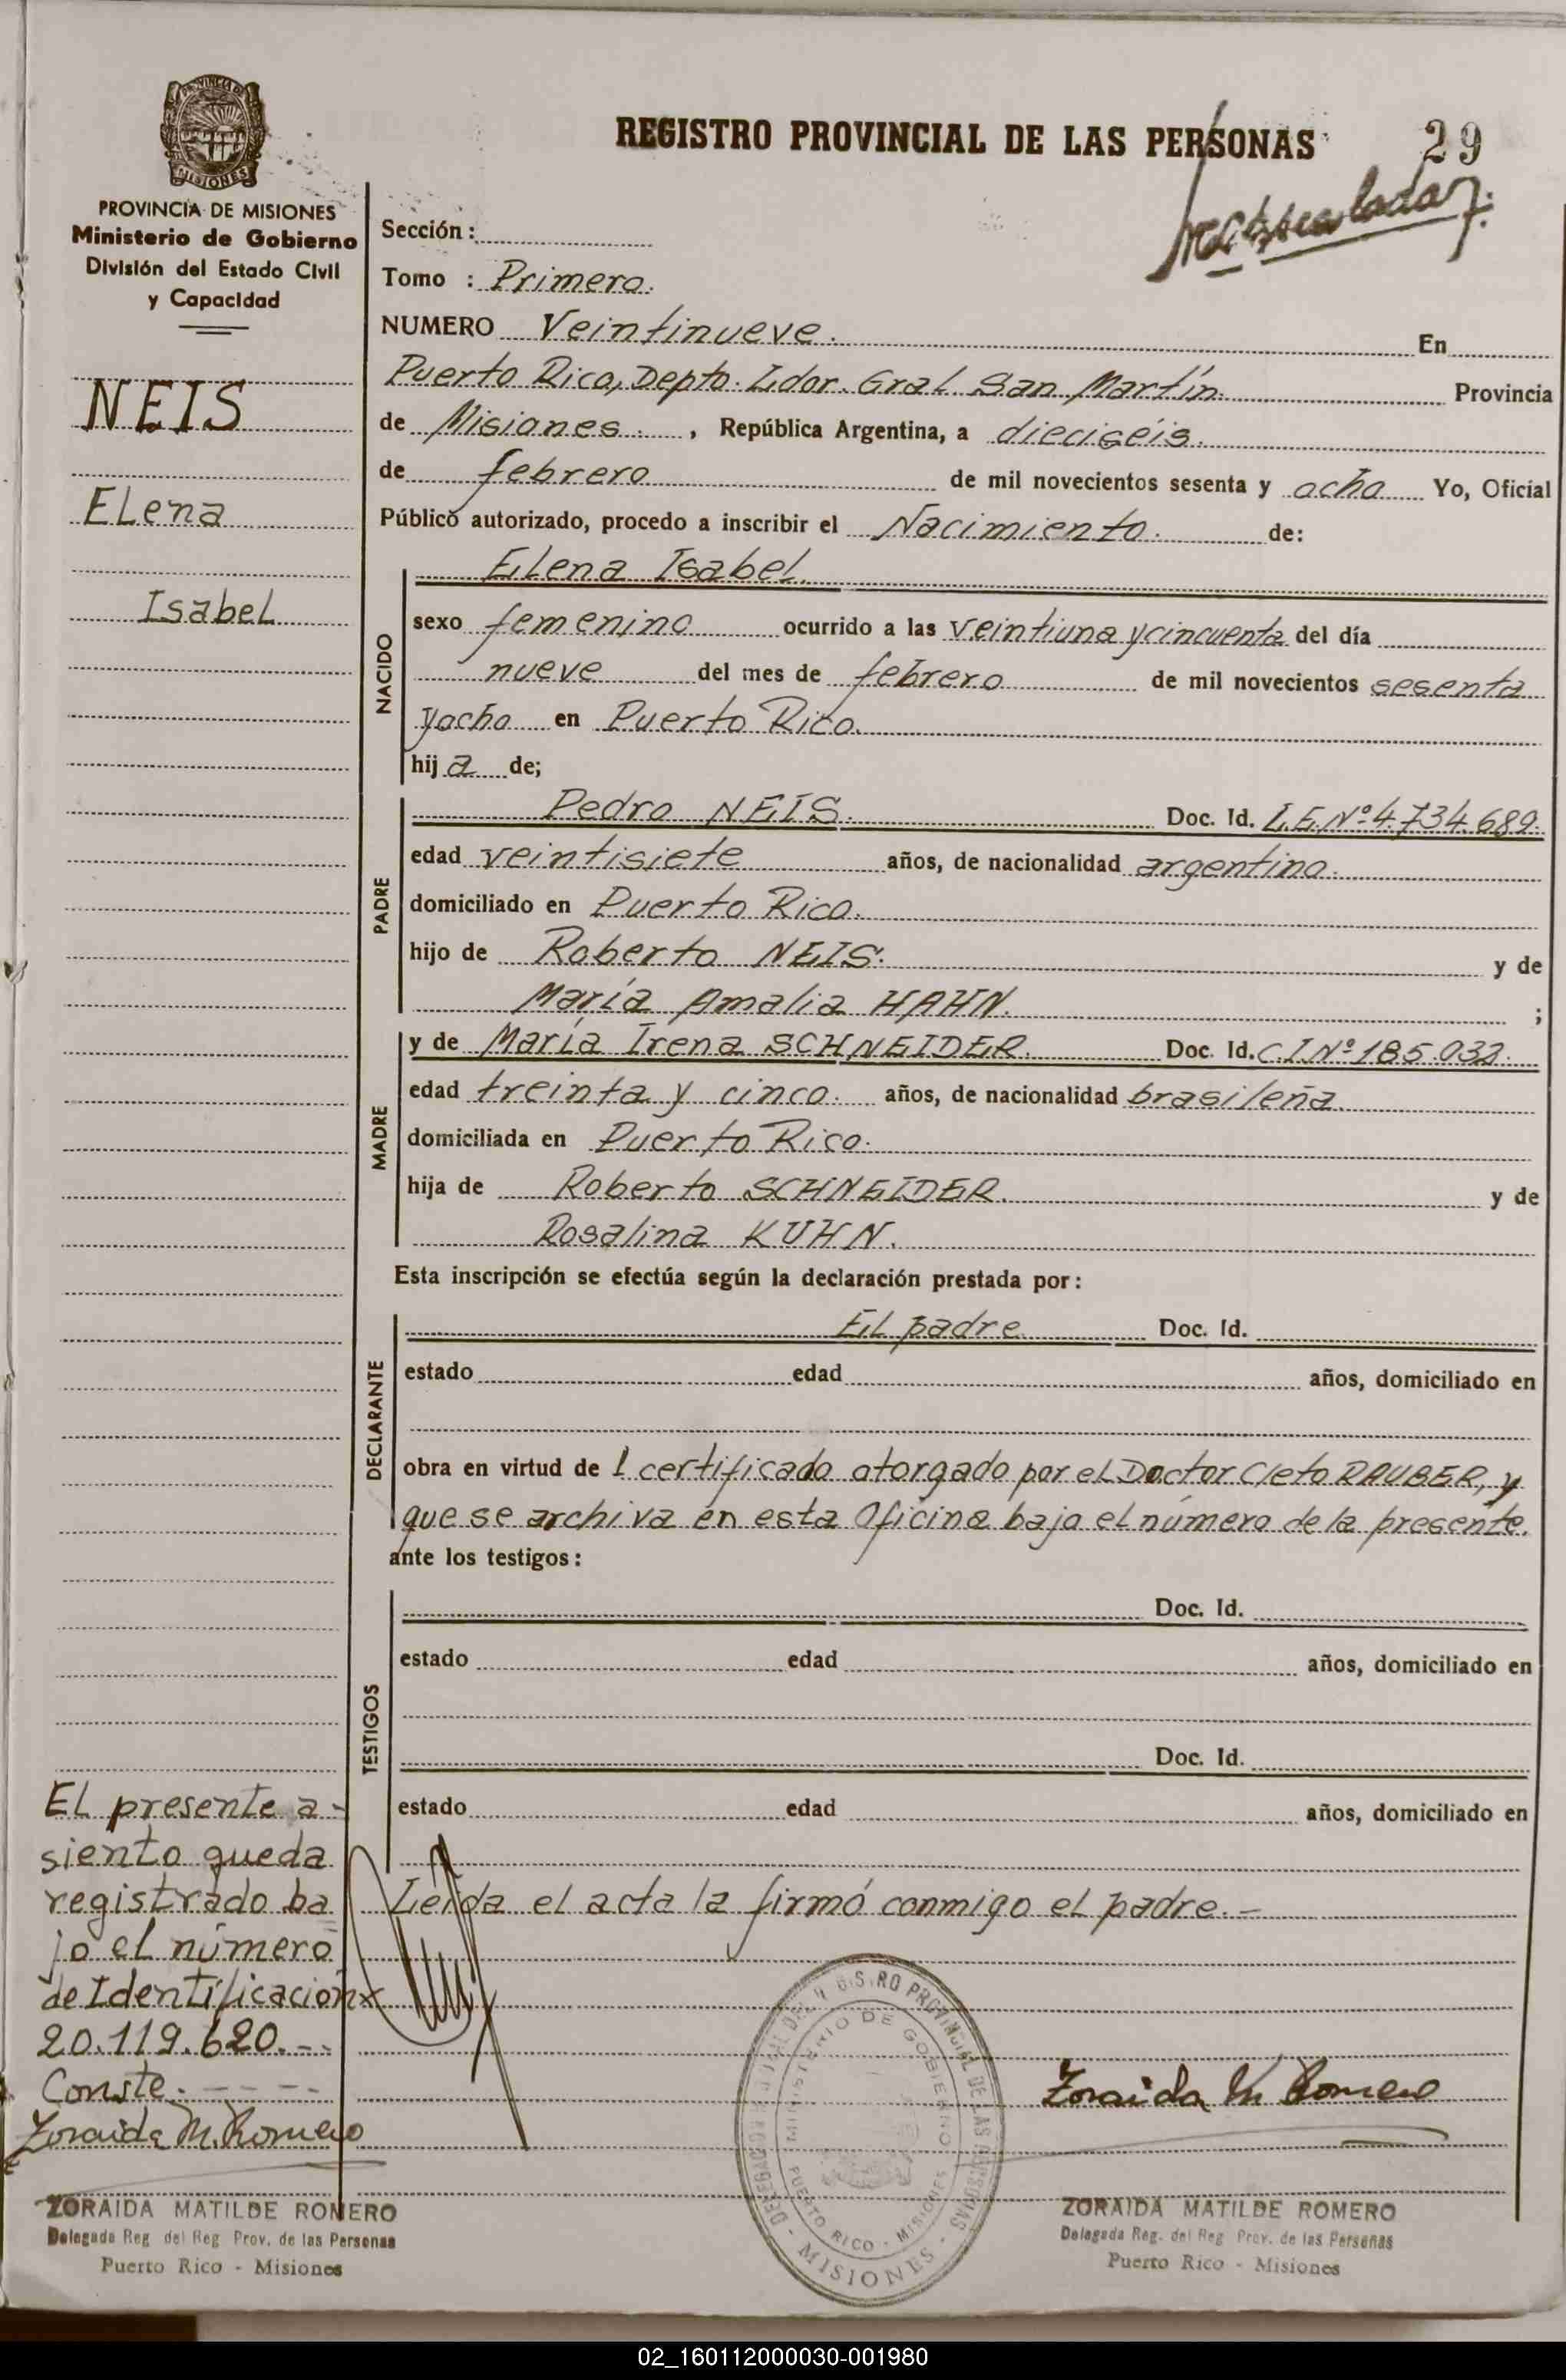 REGISTRO PROVINCIAL DE LAS PERSONAS
29
PROVINCIA DE
MISIONES
PROVINCIA DE MISIONES
Ministerio de Gobierno
División del Estado Civil
y Capacidad
NEIS
Elena
Isabel
Sección :
Tomo : Primero.
NUMERO Veintinueve. En
Puerto Rico, Depto. Ldor. Gral. San Martín. Provincia
de Misiones. , República Argentina, a dieciséis.
de febrero de mil novecientos sesenta y ocho Yo, Oficial
Público autorizado, procedo a inscribir el Nacimiento. de:
Elena Isabel.
NACIDO
sexo femenino ocurrido a las veintiuna y cincuenta del día
nueve del mes de febrero de mil novecientos sesenta
y ocho en Puerto Rico.
hij a de;
PADRE
Pedro NEIS. Doc. Id. L.E.Nº 4.734.689.
edad veintisiete años, de nacionalidad argentino.
domiciliado en Puerto Rico.
hijo de Roberto NEIS. y de
María Amalia HAHN. ;
MADRE
y de María Irena SCHNEIDER. Doc. Id. C.I.Nº 185.032.
edad treinta y cinco. años, de nacionalidad brasileña.
domiciliada en Puerto Rico.
hija de Roberto SCHNEIDER. y de
Rosalina KUHN.
Esta inscripción se efectúa según la declaración prestada por :
DECLARANTE
El padre Doc. Id.
estado edad años, domiciliado en
obra en virtud de l certificado otorgado por el Doctor Cleto RAUBER, y
que se archiva en esta Oficina bajo el número de la presente.
ante los testigos :
TESTIGOS
Doc. Id.
estado edad años, domiciliado en
Doc. Id.
estado edad años, domiciliado en
Leída el acta la firmó conmigo el padre. -
El presente a-
siento queda
registrado ba
jo el número
de Identificación
20.119.620. --
Conste. - - - -
Zoraida M. Romero
ZORAIDA MATILDE ROMERO
Delegada Reg. del Reg. Prov. de las Personas
Puerto Rico - Misiones
PROVINCIAL DE LAS PERSONAS
MISIONES
MINISTERIO DE GOBIERNO
PUERTO RICO - MISIONES
Zoraida M Romero
ZORAIDA MATILDE ROMERO
Delegada Reg. del Reg. Prov. de las Personas
Puerto Rico - Misiones
02_160112000030-001980